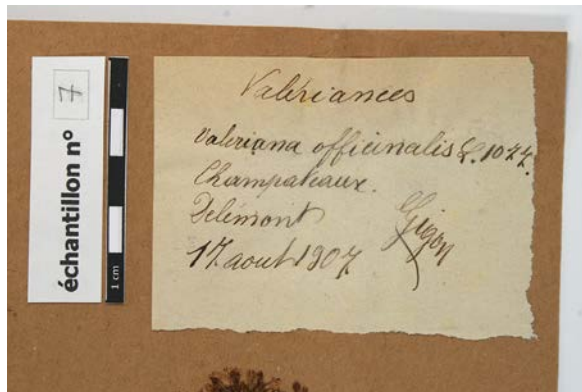 échantillon n° 7
1 cm
Valérianées
Valeriana officinalis L. 1077.
Champateaux.
Delémont
Gigon
17 aout 1907